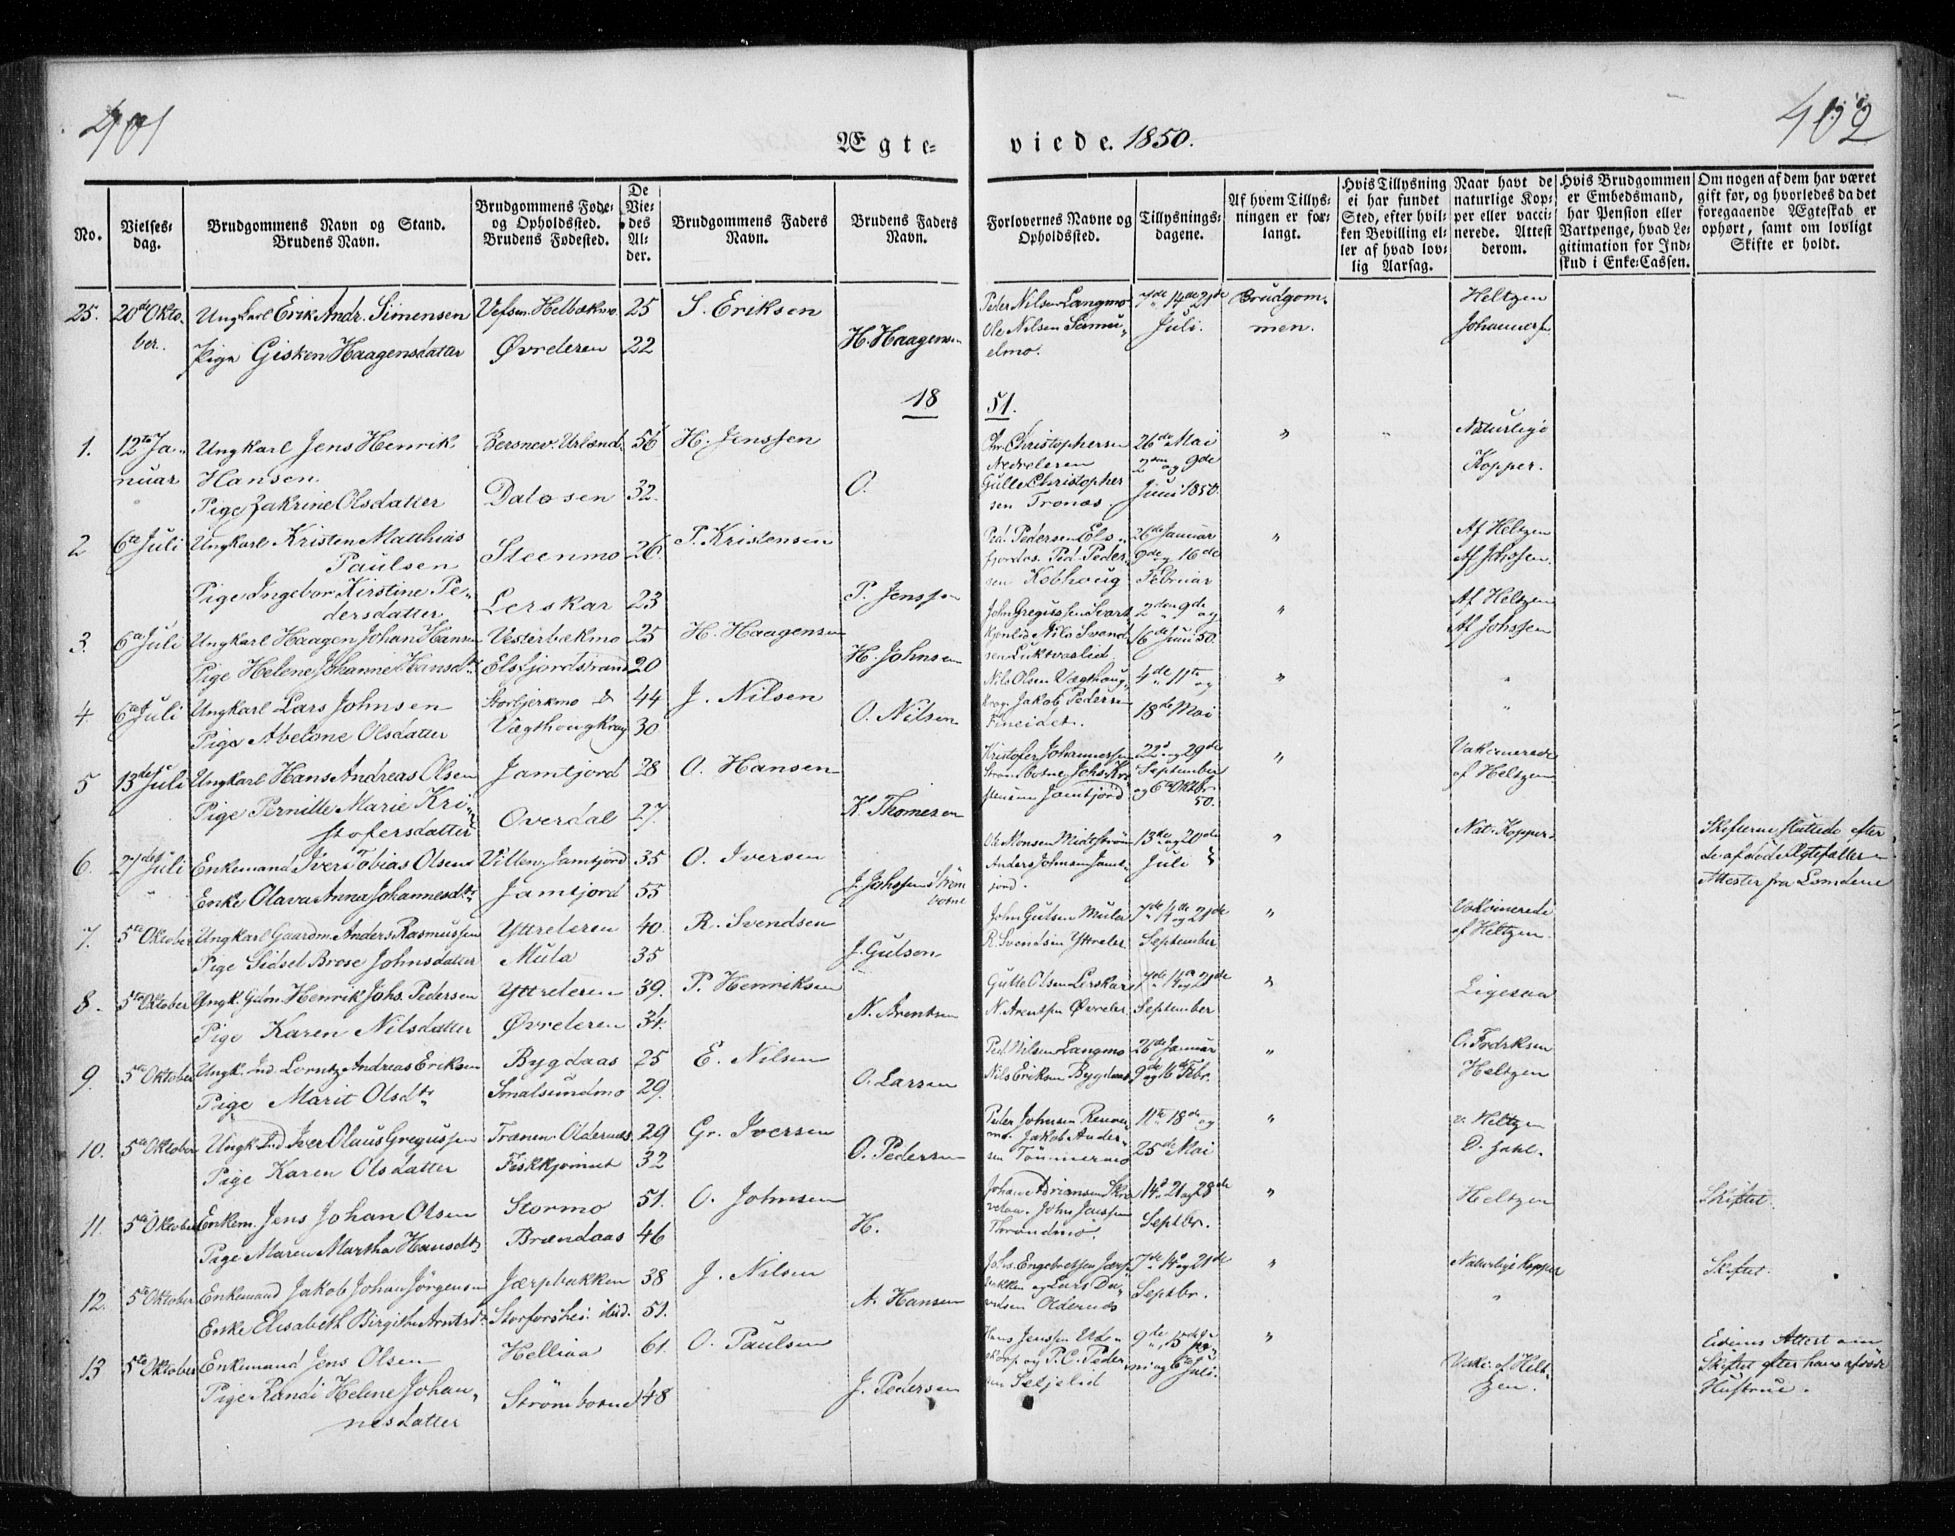 401
Ægte-
viede. 1850.
402
No.
Vielses-
dag.
Brudgommens Navn og Stand.
Brudens Navn.
Brudgommens Føde-
og Opholdssted.
Brudens Fødested.
De
Vie-
des
Al-
der.
Brudgommens Faders
Navn.
Brudens Faders
Navn.
Forlovernes Navne og
Opholdssted.
Tillysnings-
dagene.
Af hvem Tillys-
ningen er for-
langt.
Hvis Tillysning
ei har fundet
Sted, efter hvil-
ken Bevilling el-
ler af hvad lov-
lig Aarsag.
Naar havt de
naturlige Kop-
per eller vacci-
nerede. Attest
derom.
Hvis Brudgommen
er Embedsmand,
har Pension eller
Vartpenge, hvad Le-
gitimation for Ind-
skud i Enke-Cassen.
Om nogen af dem har været
gift før, og hvorledes da det
foregaaende Ægteskab er
ophørt, samt om lovligt
Skifte er holdt.
25. 20de Okto-
ber.
Ungkarl Erik Andr. Simensen
Pige Gisken Haagensdatter
Vefsen. Helbækmo
Øvrleren
25
22
S. Eriksen
H. Haagensen
Peder Nilsen Langmo
Ole Nilsen Samu-
elmo.
7de 14de 21de
Juli.
Brudgom-
men.
Heltzen
18
51.
1. 12te Ja-
nuar
Ungkarl Jens Henrik
Hansen
Pige Zakrine Olsdatter
Dalosen
56
32.
H. Jenssen
O.
Chr. Christophersen
Nedreleren
Gulle Christopher
sen Tronæs
26de Mai
2den og 9de
Juni 1850.
"
Naturlige
Kopper.
2 6te Juli
Ungkarl Kristen Matthias
Paulsen
Pige Ingebor Kirstine Pe-
dersdatter
Steenmo
Lerskar
26.
23
P. Kristensen
P. Jenssen
Ped. Pedersen Els-
fjordos. Ped. Peder-
sen Kobhoug
26de Januar
9de og 16de
Februar
"
Af Heltzen
Af Johssen.
3. 6te Juli
Ungkarl Haagen Johan Hansen
Pige Helene Johanne Hansdtr
Vesterbækmo
Elsfjordstrand
25
20
H. Haagensen
H. Johnsen
John Gregussen Svart-
Nils Svend-
sen Luktvaslid.
2den 9de og
16de Juni 50.
"
Af Heltzen
Af Johssen
4 6te Juli
Ungkarl Lars Johnsen
Pige Abelone Olsdatter
Storbjerkmo &
Vægthougkrog
44
30
J. Nilsen
O. Nilsen
Nils Olsen Vægthoug-
krog. Jakob Pedersen
Fineidet.
4de 11te og
18de Mai
"
"
"
5 13de Juli
Ungkarl Hans Andreas Olsen
Pige Pernille Marie Kri-
stofersdatter
Jamtjord
Overdal
28
27.
O. Hansen
K. Thomesen
Kristofer Johannessen
Strömbotne Johs. Kri-
stensen Jamtjord
22de og 29de
September
og 6te Oktbr.
50.
"
Vakcinerede
af Heltzen
6. 27de Juli
Enkemand Iver Tobias Olsen
Enke Olava Anna Johannesdtr
Villen. Jamtjord
Jamtjord
35
55
O. Iversen
J. Johssen Ström-
botne
Ole Monsen Midtström
Anders Johnsen Jamt-
jord.
13de og 20de
Juli
"
Nat. Kopper.
Skifterne sluttede efter
de afdöde Ægtefæller
Attester fra Lensmændene
7. 5te Oktober
Ungkarl Gaardm. Anders Rasmussen
Pige Sidsel Brose Johnsdatter
Yttreleren
Mula
40.
35
R. Svendsen
J. Gulson
John Gulsen Mula
R. Svendsen Yttreler.
7de 14de og 21de
September
"
Vakcinerede
af Heltzen.
8. 5te Oktober
Ungk. Gdm. Henrik Johs. Pedersen
Pige Karen Nilsdatter
Yttreleren
Øvreleren
39.
34.
P. Henriksen
N. Arentsen
Gulle Olsen Lerskar
N. Arentsen Øvreler.
7de 14de og 21de
September
"
Ligesaa
9. 5te Oktober
Ungk. Ind. Lorntz Andreas Eriksen
Pige Marit Olsdtr
Bygdaas
Smalsundmo
25
29.
E. Nilsen
O. Larsen
Ped. Nilsen Langmo
Nils Eriksen Bygdaas
26de Januar
9de og 16de Febr.
"
O. Fredriksen
Heltzen
10. 5te Oktober
Ungk. Ind. Iver Olaus Gregussen
Pige Karen Olsdatter
Trænen. Oldernæs
29
32
Gr. Iversen
O. Pedersen
Peder Johnsen
Jakob Ander-
sen Tömmermo
11te 18de og
25de Mai
"
Heltzen
D. Zahl.
11. 5te Oktober
Enkem. Jens Johan Olsen
Pige Maren Martha Hansdtr
Stormo
Brændaas
51.
46
O. Johnsen
H.
Johan Adriansen
John Janssen
Throndmo.
14de 21 og 28de
Septbr.
"
Heltzen
Skiftet.
12. 5te Oktober
Enkemand Jakob Johan Jörgensen
Enke Elisabeth Birgithe Arntsdtr
Jærpbakken
Storforshei
38
51.
J. Nilsen
A. Hansen
Johs. Engebretsen Jærp-
bakken og Lars Da-
vidsen Oldernæs
7de 14de og 21de
Septbr.
"
Naturlige Kopper
"
Skiftet.
13 5te Oktober
Enkemand Jens Olsen
Pige Randi Helene Johan-
nesdatter
Helliaa
Strömbotne
61.
48
O. Paulsen
J. Pedersen
Hans Jenssen
og P. C. Peder-
sen Seljelid
9de
og 6te Juli.
"
Vakc. af Helt-
zen.
Attest om
Skiftet efter hans afdöde
Hustrue.